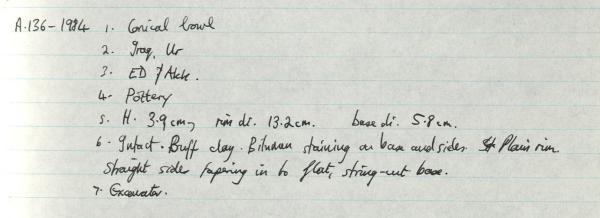 A.136-1984 1. Conical bowl
2. Iraq, Ur
3. ED / Akk.
4. Pottery
5. H. 3.9cm, rim di. 13.2cm. base di. 5.8cm.
6. Intact. Buff clay. Bitumen staining on base and sides. Plain rim.
Straight sides tapering in to flat, string-cut base.
7. Excavator.